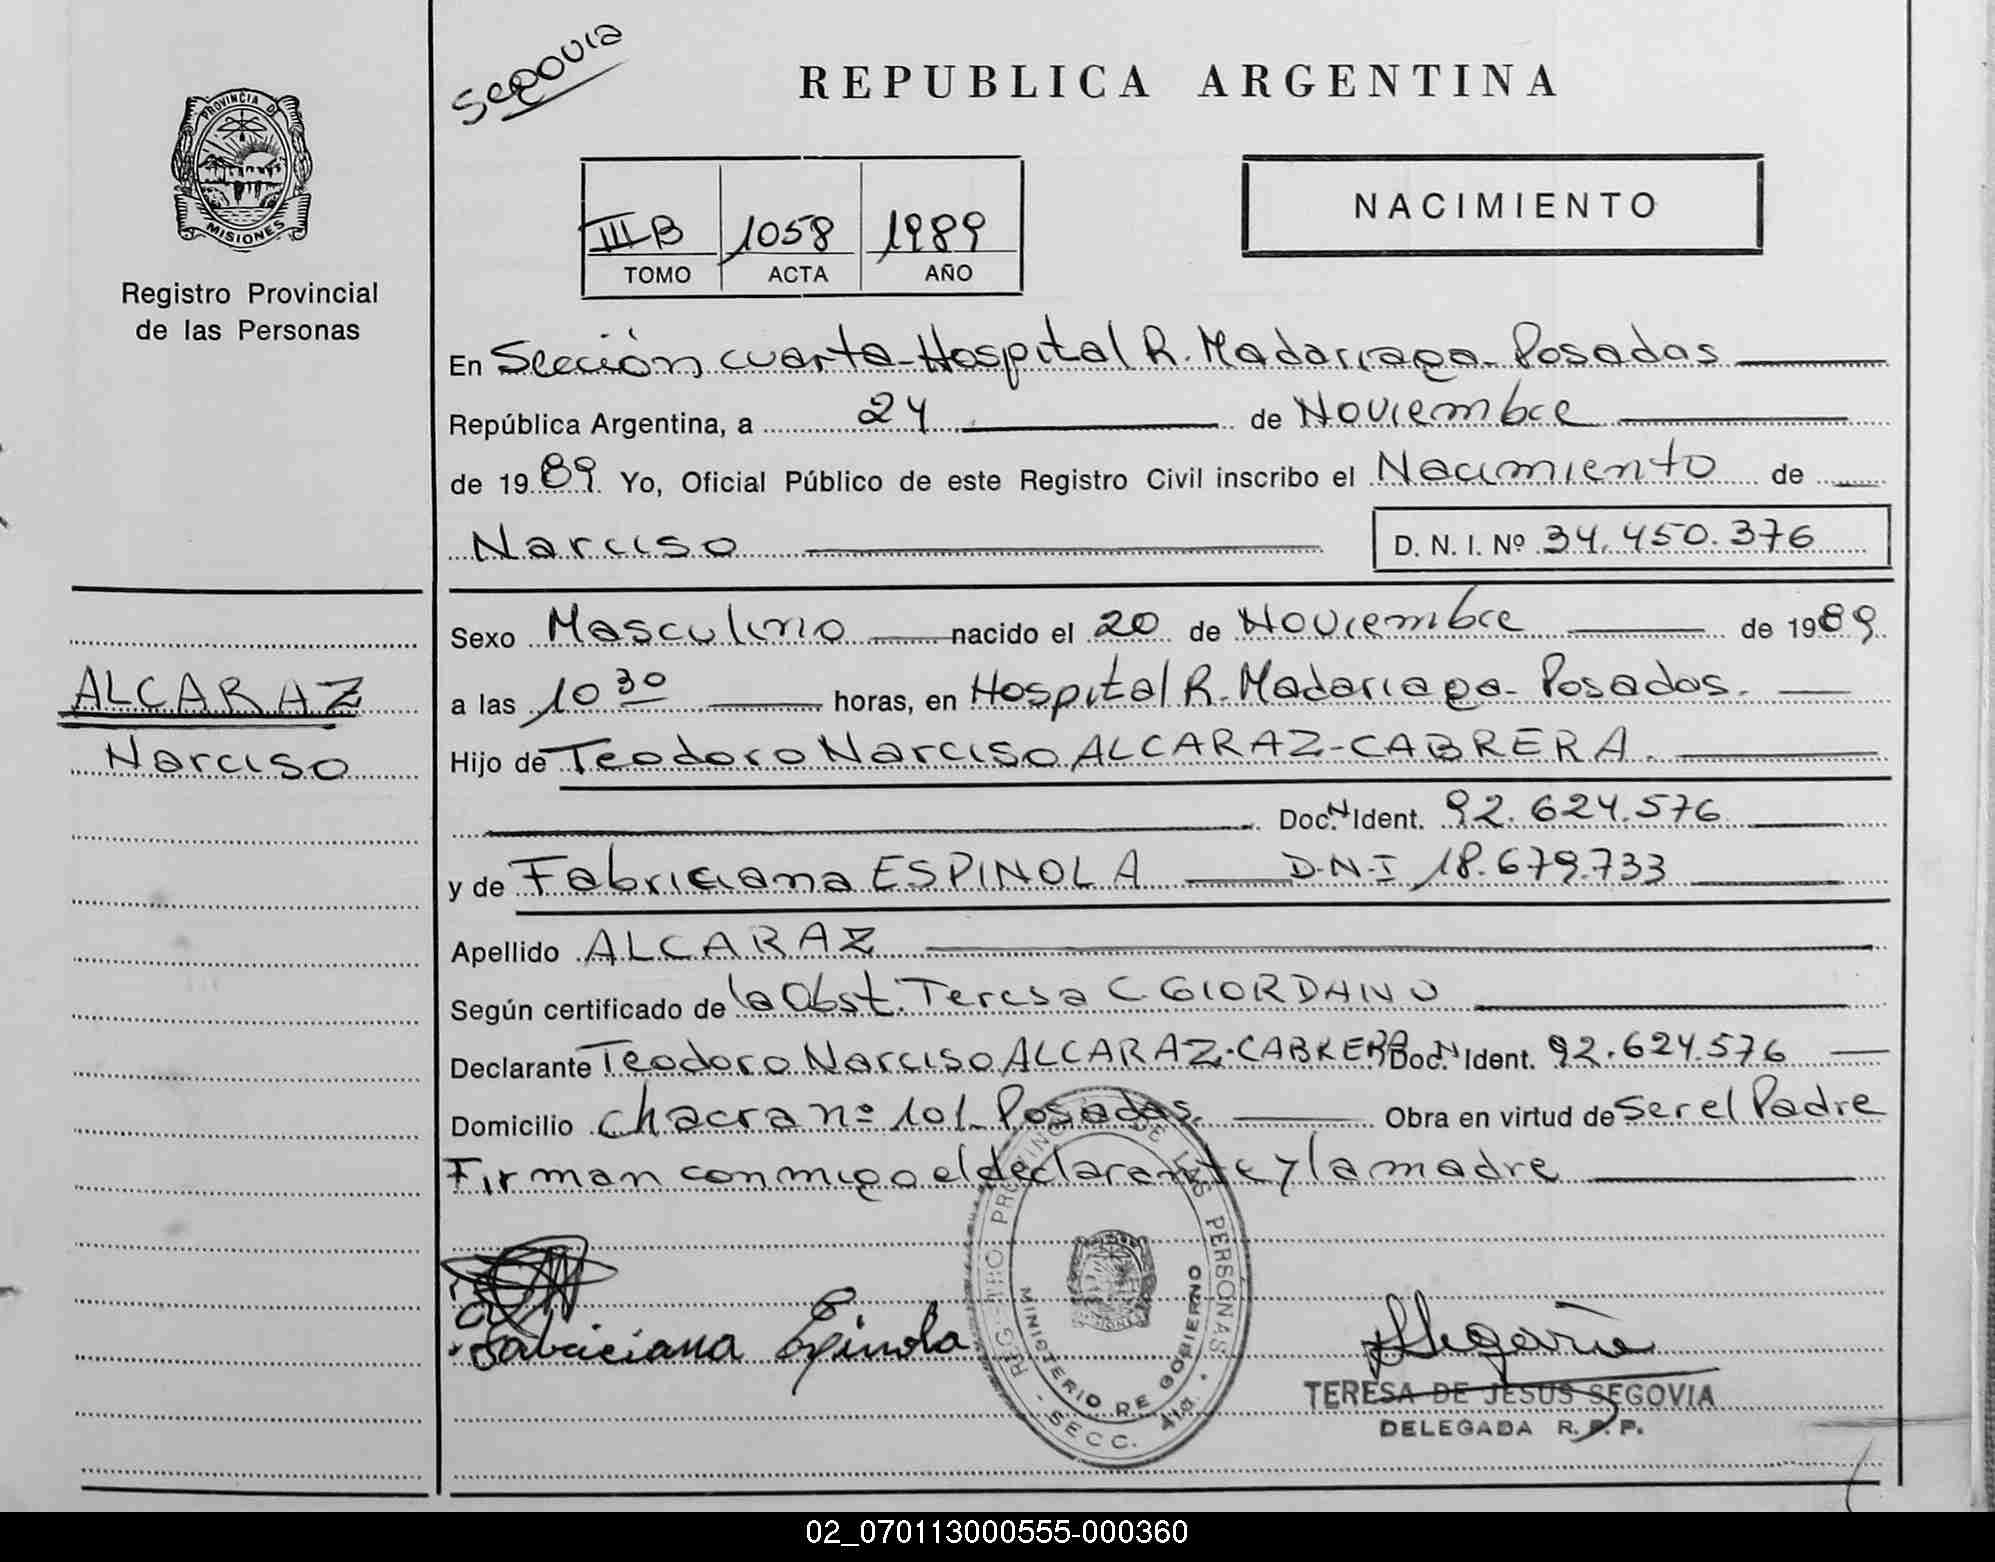 Segovia
REPUBLICA ARGENTINA
PROVINCIA DE
MISIONES
Registro Provincial
de las Personas
III B 1058 1989
TOMO ACTA AÑO
NACIMIENTO
En Sección cuarta-Hospital R. Madariaga-Posadas
República Argentina, a 24 de Noviembre
de 1989 Yo, Oficial Público de este Registro Civil inscribo el Nacimiento de
Narciso D. N. I. Nº 34.450.376
Sexo Masculino nacido el 20 de Noviembre de 1989
a las 10 30 horas, en Hospital R. Madariaga-Posadas.
ALCARAZ
Narciso
Hijo de Teodoro Narciso ALCARAZ-CABRERA.
Doc. N Ident. 92.624.576
y de Fabriciana ESPINOLA D.N.I 18.679.733
Apellido ALCARAZ
Según certificado de la Obst. Teresa C. GIORDANO
Declarante Teodoro Narciso ALCARAZ-CABRERA Doc. N Ident. 92.624.576
Domicilio chacra nº 101-Posadas. Obra en virtud de ser el Padre
Firman conmigo el declarante y la madre
Fabriciana Espinola
REGISTRO PROVINCIAL DE LAS PERSONAS
MINISTERIO DE GOBIERNO
SECC. 4ta.
TERESA DE JESUS SEGOVIA
DELEGADA R. P. P.
02_070113000555-000360